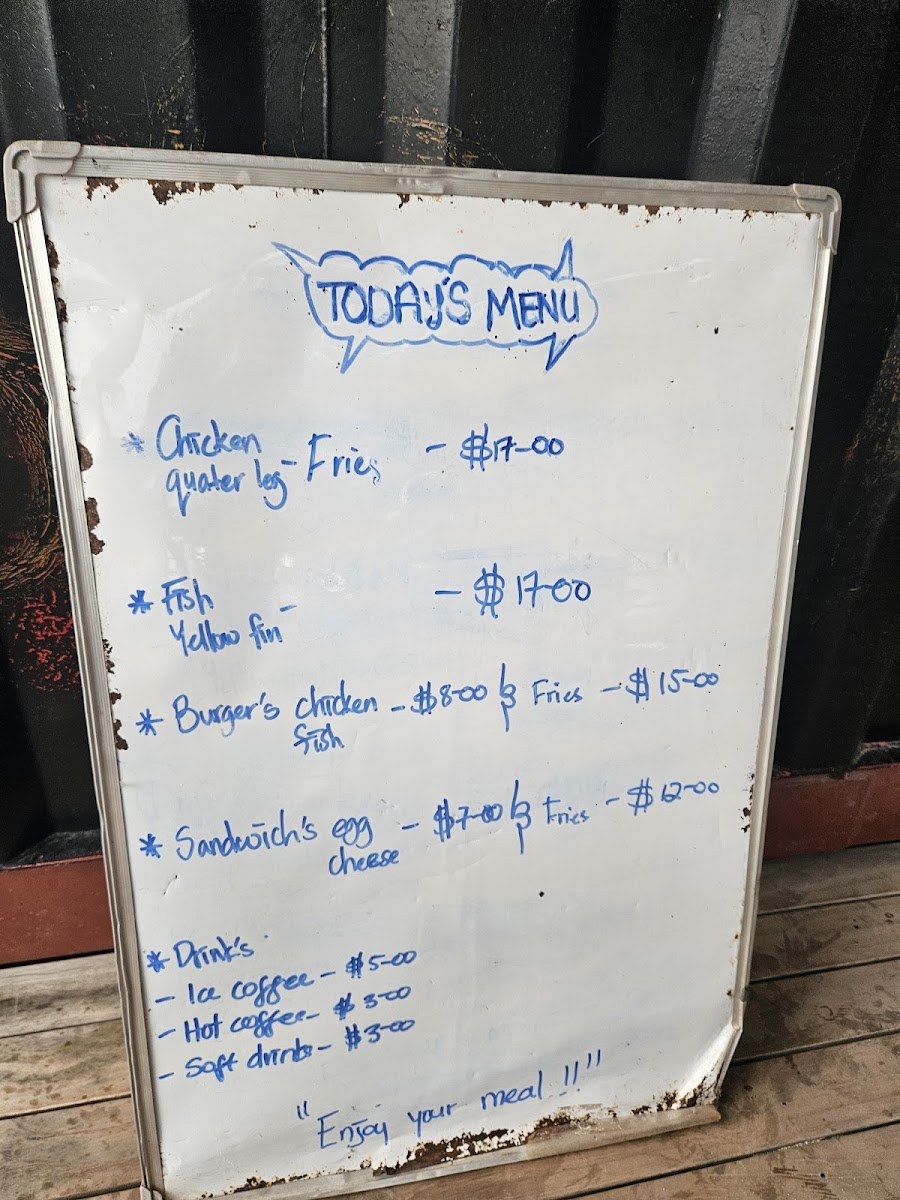 TODAY'S MENU
* Chicken
quater leg - Fries - $17-00
* Fish
Yellow fin - - $17-00
* Burger's chicken - $8-00 & Fries - $15-00
fish
* Sandwich's egg - $7-00 & Fries - $12-00
cheese
* Drink's
- Ice coffee - $5-00
- Hot coffee - $3-00
- Soft drinks - $3-00
"Enjoy your meal !!"